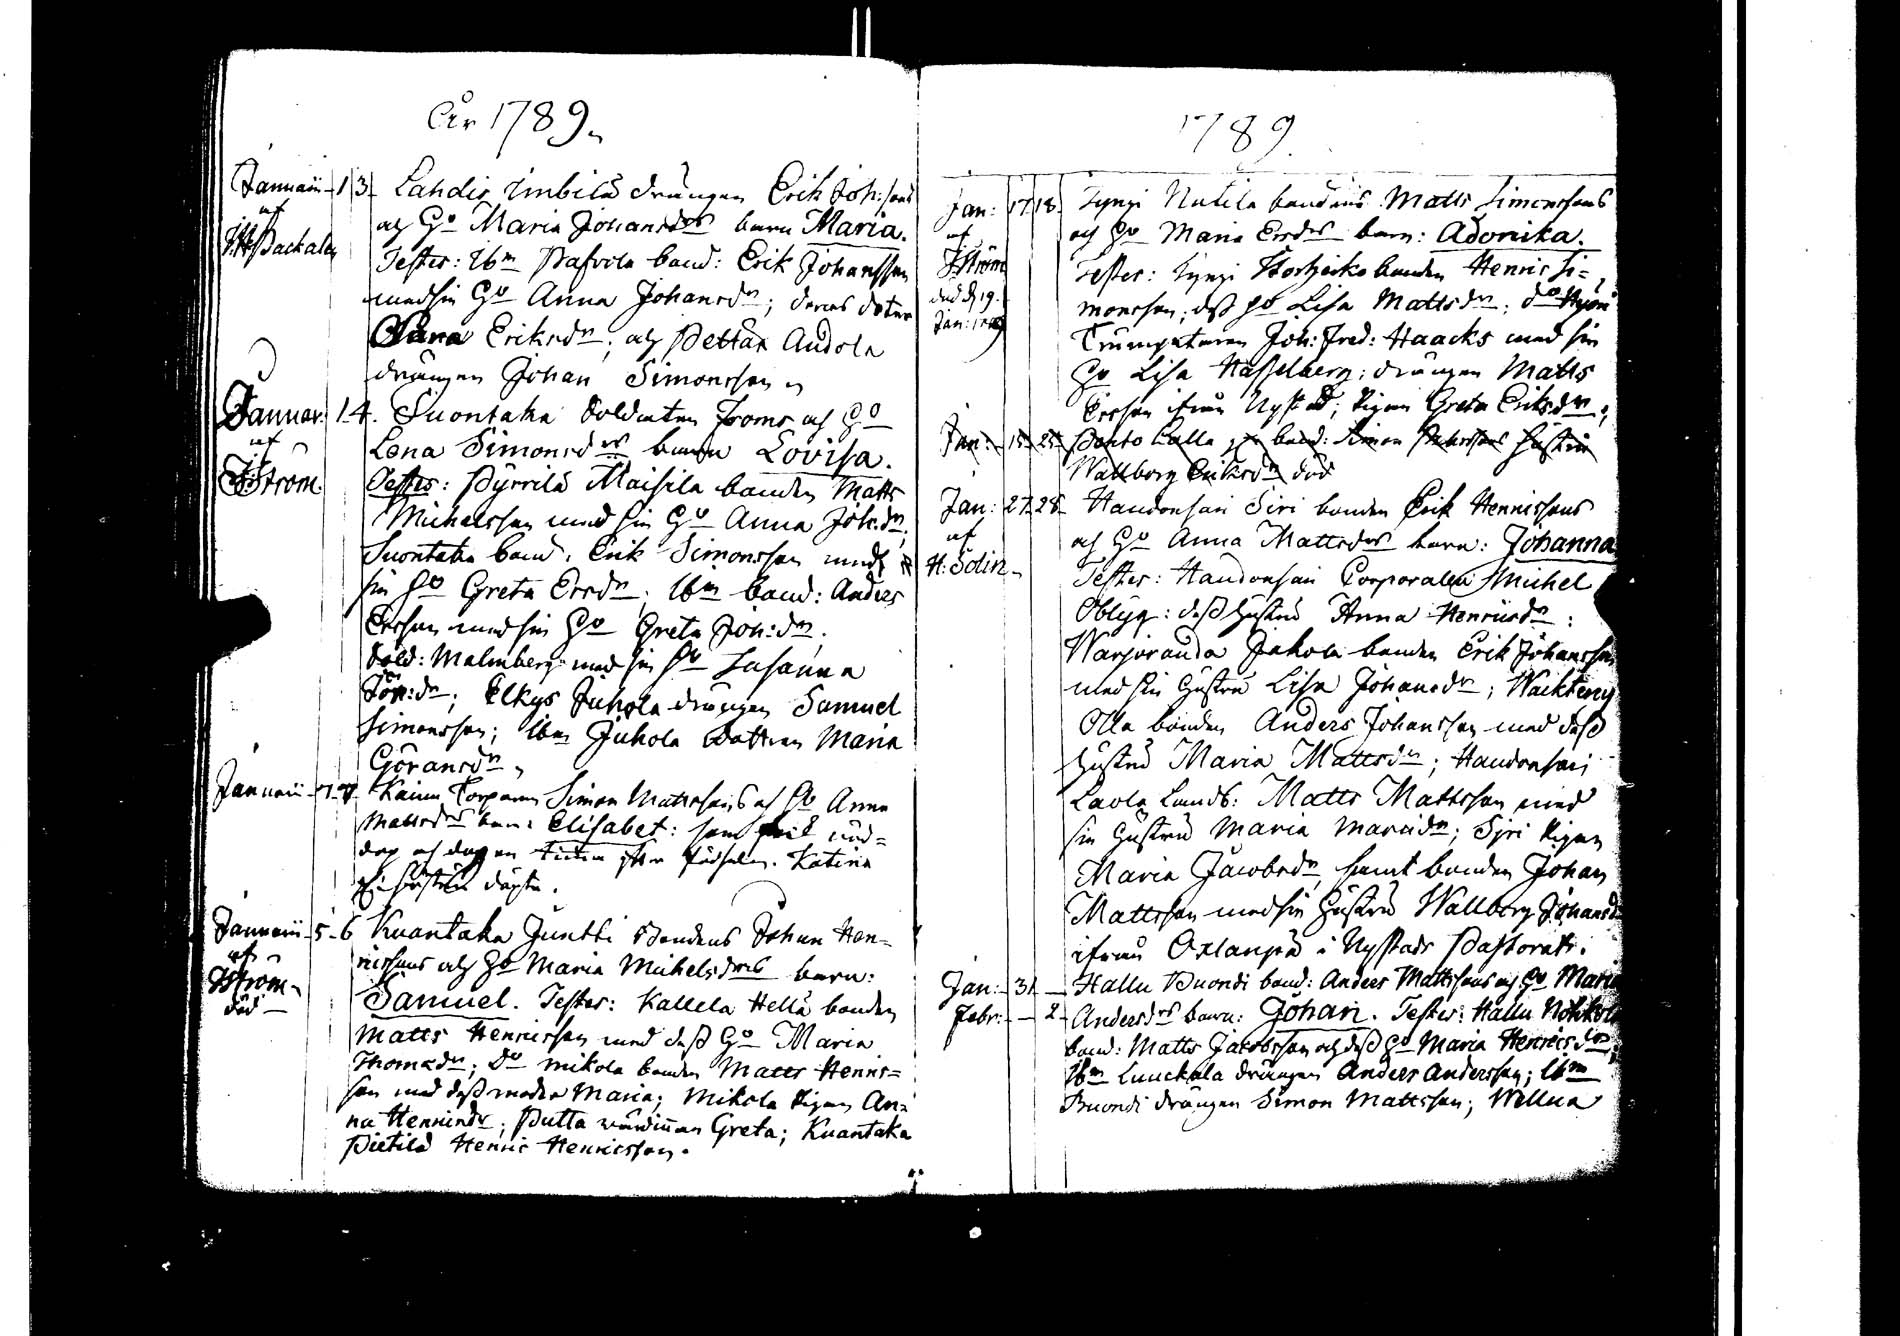 År 1789.
Januarii 1 3 Lahdis Imbilä drängen Erik Joh:sons
af och Ho Maria Johansdrs barn Maria.
Testes: Ibm Pafvola band: Erik Johansson
med sin Ho Anna Johansdr; deras dotter
Eriksdr; och Pettär Audola
drängen Johan Simonsson
Januar: 1 4. Suontaka Soldaten Froms och Ho
af Lena Simonsdrs barn Lovisa.
JStröm. Testes: Pyrrilä Maisila bonden Matts
Michelsson med sin Ho Anna Joh:dr;
Suontaka band: Erik Simonsson med
sin Ho Greta Ersdr; Ibm band: Anders
Ersson med sin Ho Greta Joh:dr.
Sold: Malmberg med sin Ho Susanna
Joh:dr; Elkys Juhola drängen Samuel
Simonsson; Ibm Juhola dottren Maria
Göransdr
Januarii Torparen Simon Mattssons och Ho Anna
Mattsdrs barn: Elisabet: som fick nöd=
dop och timma efter födseln. Katrina
döpte.
Januarii 5 6 Kuantaka Juntti Bondens Johan Hen=
af ricssons och Ho Maria Michelsdrs barn:
JStröm Samuel. Testes: Kallela Hellä bonden
död Matts Henricsson med dess Ho Maria
Thomædr; Do Mikola bonden Matts Henrics=
son med dess moder Maria; Mikola Pigan An=
na Henricsdr; Putta värdinnan Greta; Kuantaka
Pietilä Henric Henricsson.
1789.
Jan: 17 18 Tyngi Nutila bandens Matts Simonssons
af och Ho Maria Ersdrs barn: Adonika.
JStröm Testes: Tyngi bonden Henric Si=
död d 19 monsson, dess Ho Lisa Mattsdr;
Jan: Trumpetaren Joh: Fred: Haacks med sin
Ho Lisa Hasselberg; drängen Matts
Ersson ifrån Nystad; Pigan Greta Eriksdr;
Jan: 15 25 band: Simon hustru
Wallborg Eriksdr död
Jan: 27 28 Haudonsari Siri bonden Erik Henricssons
af och Ho Anna Mattsdrs barn: Johanna
H: Solin Testes: Haudonsari Corporalen Michel
Oblyg: dess hustru Anna Henricsdr:
Warjoranda Jakola bonden Erik Johansson
med sin hustru Lisa Johansdr;
Olla bonden Anders Johansson med dess
hustru Maria Mattsdr; Haudonsari
Laola Landb: Matts Mattsson med
sin hustru Maria dr; Siri Pigan
Maria Jacobsdr, samt bonden Johan
Mattsson med sin hustru Wallborg Johansd
ifrån Orlanpä i Nystads Pastorat.
Jan: 31 Hallu Buondi band: Anders Mattssons och Ho Maria
Febr: 2 Andersdrs barn: Johan. Testes: Hallu
band: Matts Jakobsson och dess Ho Maria Henricsdr;
Ibm Luuckala drängen Anders Andersson; Ibm
Buondi drängen Simon Mattsson; Wellua